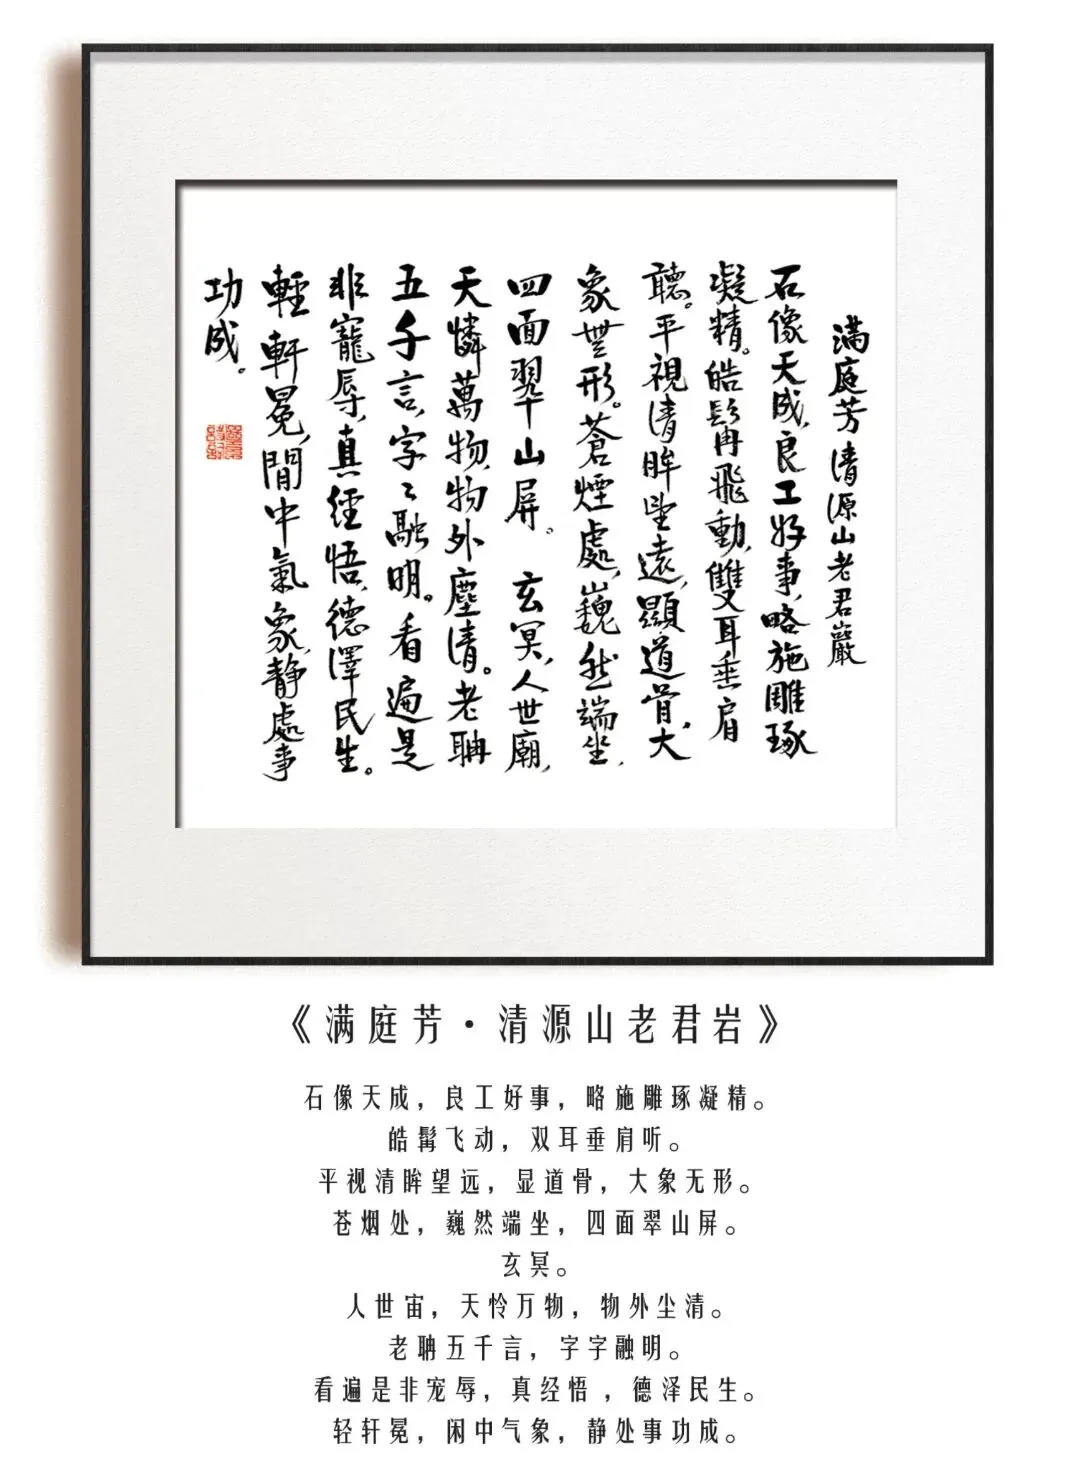 满庭芳清源山老君巖
石像天成,良工好事,略施雕琢
凝精。皓髯飛動,雙耳垂肩
聽。平視清眸望遠,顯道骨,大
象無形。蒼煙處,巍然端坐,
四面翠山屏。玄冥,人世廟,
天憐萬物,物外塵清。老聃
五千言,字々融明。看遍是
非寵辱,真經悟,德澤民生。
輕軒冕,閒中氣象,靜處事
功成。
《满庭芳·清源山老君岩》
石像天成，良工好事，略施雕琢凝精。
皓髯飞动，双耳垂肩听。
平视清眸望远，显道骨，大象无形。
苍烟处，巍然端坐，四面翠山屏。
玄冥。
人世宙，天怜万物，物外尘清。
老聃五千言，字字融明。
看遍是非宠辱，真经悟，德泽民生。
轻轩冕，闲中气象，静处事功成。